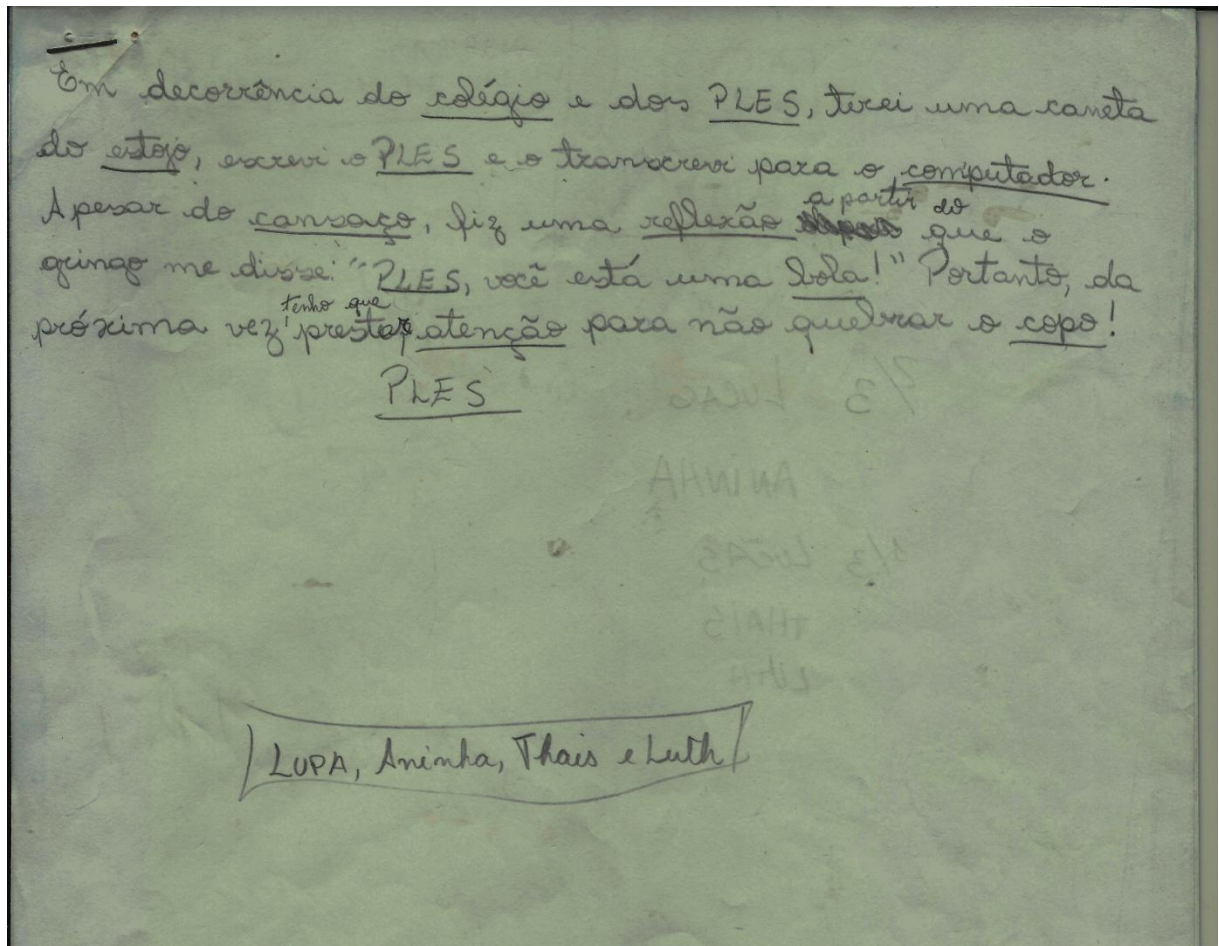 Em decorrência do colégio e dos PLES, tirei uma caneta
do estojo, escrevi o PLES e o transcrevi para o computador.
Apesar do cansaço, fiz uma reflexão a partir do que o
gringo me disse: "PLES, você está uma bola!" Portanto, da
próxima vez tenho que prestar atenção para não quebrar o copo!
PLES
2/3 LUCAS
ANINHA
LUCAS
THAIS
LUTH
LUPA, Aninha, Thais e Luth